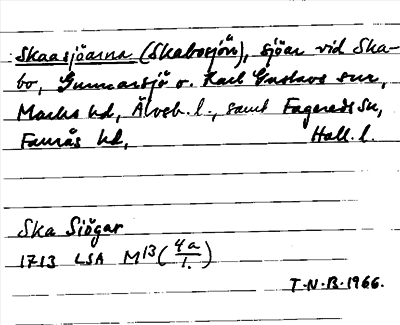 Skaasjöarna (Skabosjön), sjöar vid Ska-
bo, Gunnarsjö o. Karl Gustavs snr,
Marks hd, Älvsb. l., samt Fagereds sn,
Faurås hd, Hall. l.
Ska Siögar
1713 LSA M13 (4a/1.)
T.N.B. 1966.